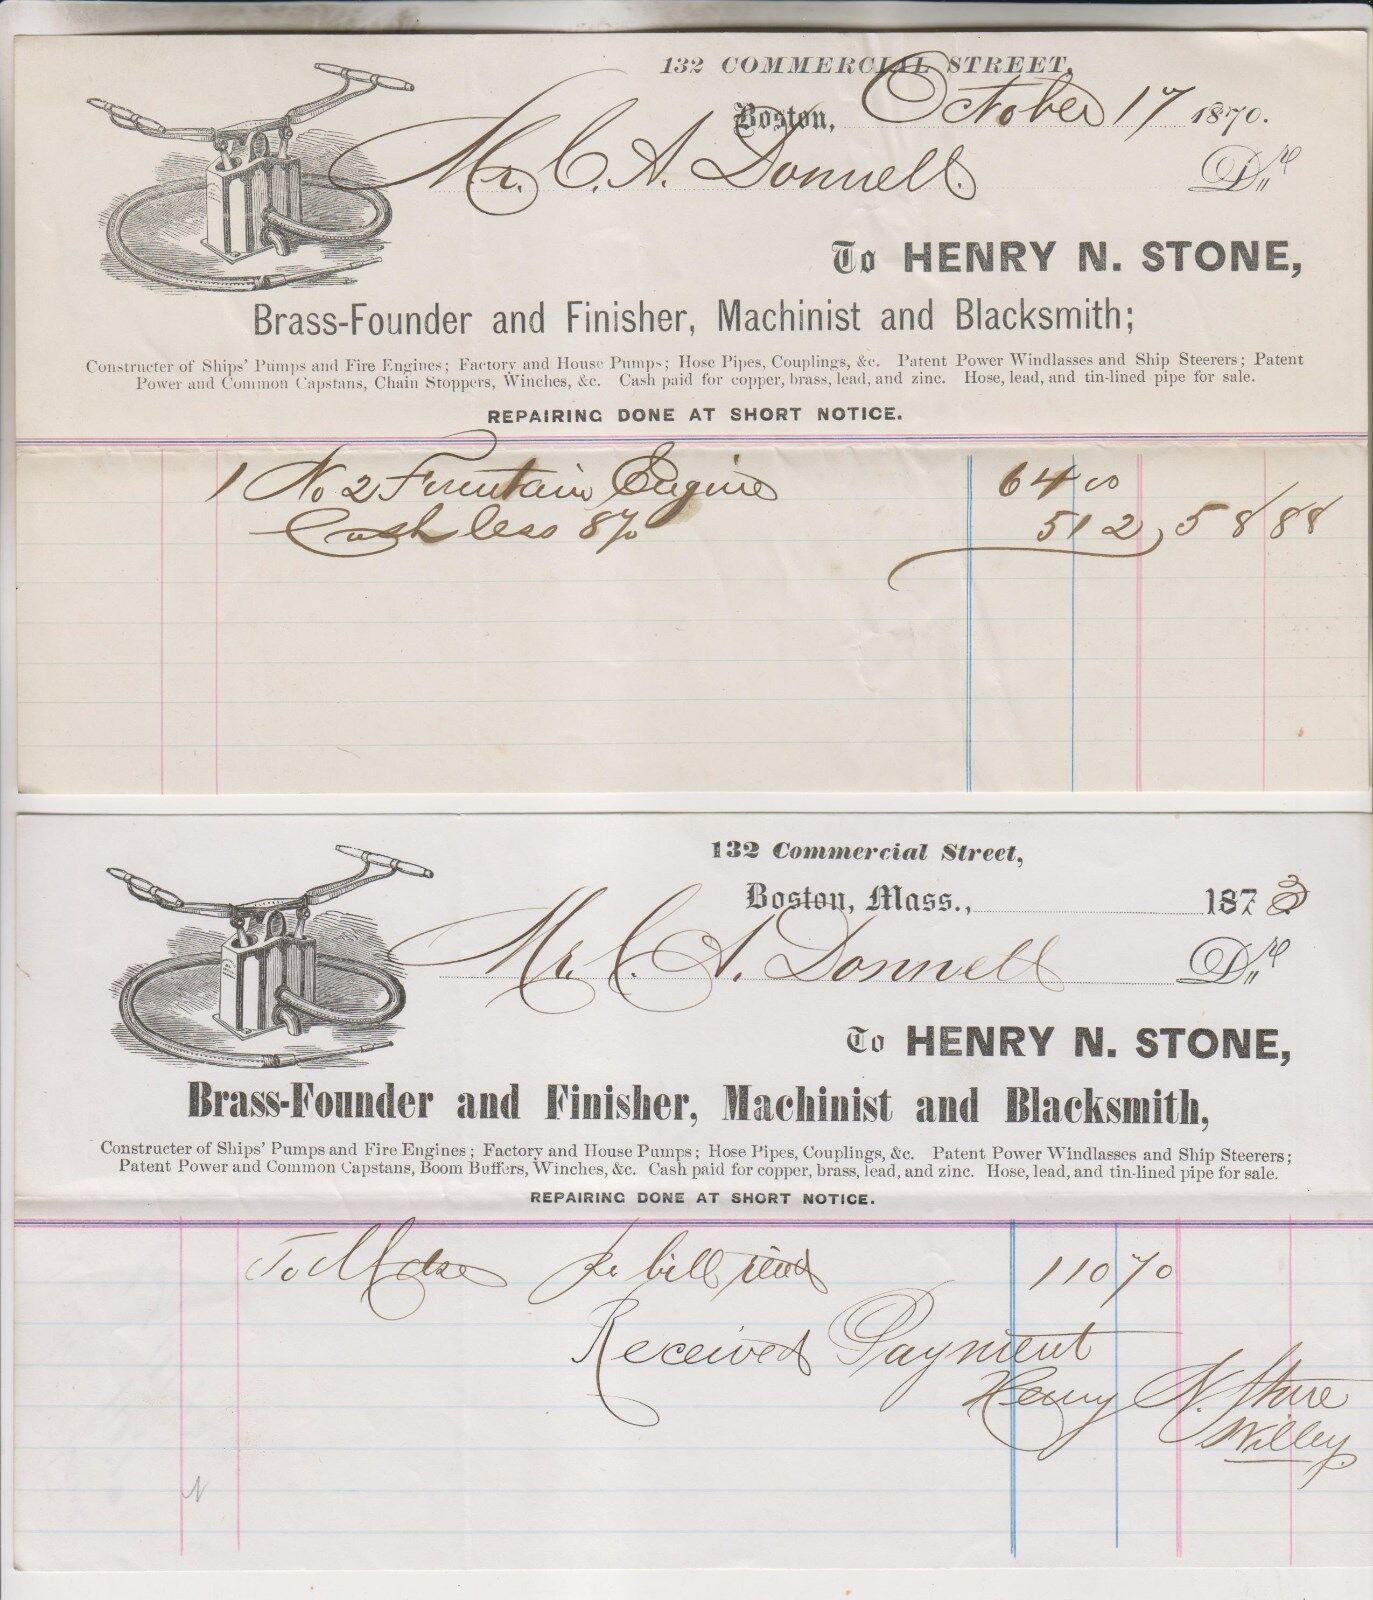 132 COMMERCIAL STREET,
Boston, October 17 1870.
Mr. C. A. Donnell. Dr
To HENRY N. STONE,
Brass-Founder and Finisher, Machinist and Blacksmith;
Constructer of Ships' Pumps and Fire Engines; Factory and House Pumps; Hose Pipes, Couplings, &c. Patent Power Windlasses and Ship Steerers; Patent
Power and Common Capstans, Chain Stoppers, Winches, &c. Cash paid for copper, brass, lead, and zinc. Hose, lead, and tin-lined pipe for sale.
REPAIRING DONE AT SHORT NOTICE.
1 No 2 Fountain Engine 64 00
Cash less 8% 5 12 58 88
132 Commercial Street,
Boston, Mass., 1873
Mr. C. A. Donnell Dr
To HENRY N. STONE,
Brass-Founder and Finisher, Machinist and Blacksmith,
Constructer of Ships' Pumps and Fire Engines; Factory and House Pumps; Hose Pipes, Couplings, &c. Patent Power Windlasses and Ship Steerers;
Patent Power and Common Capstans, Boom Buffers, Winches, &c. Cash paid for copper, brass, lead, and zinc. Hose, lead, and tin-lined pipe for sale.
REPAIRING DONE AT SHORT NOTICE.
To Mdse bill 110 70
Received Payment
Henry N. Stone
Willey